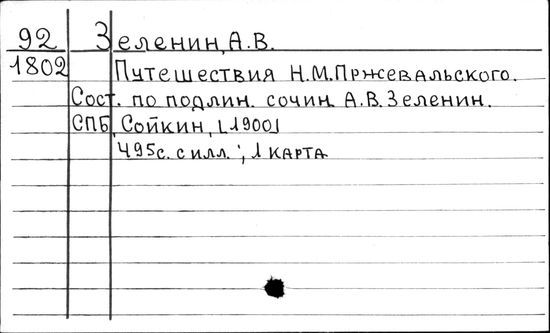 92 Зеленин, А.В.
1802 Путешествия Н.М.Пржевальского.
Сост. по подлин. сочин. А.В.Зеленин.
СПБ, Сойкин, [1900]
495с. с илл.; 1 карта